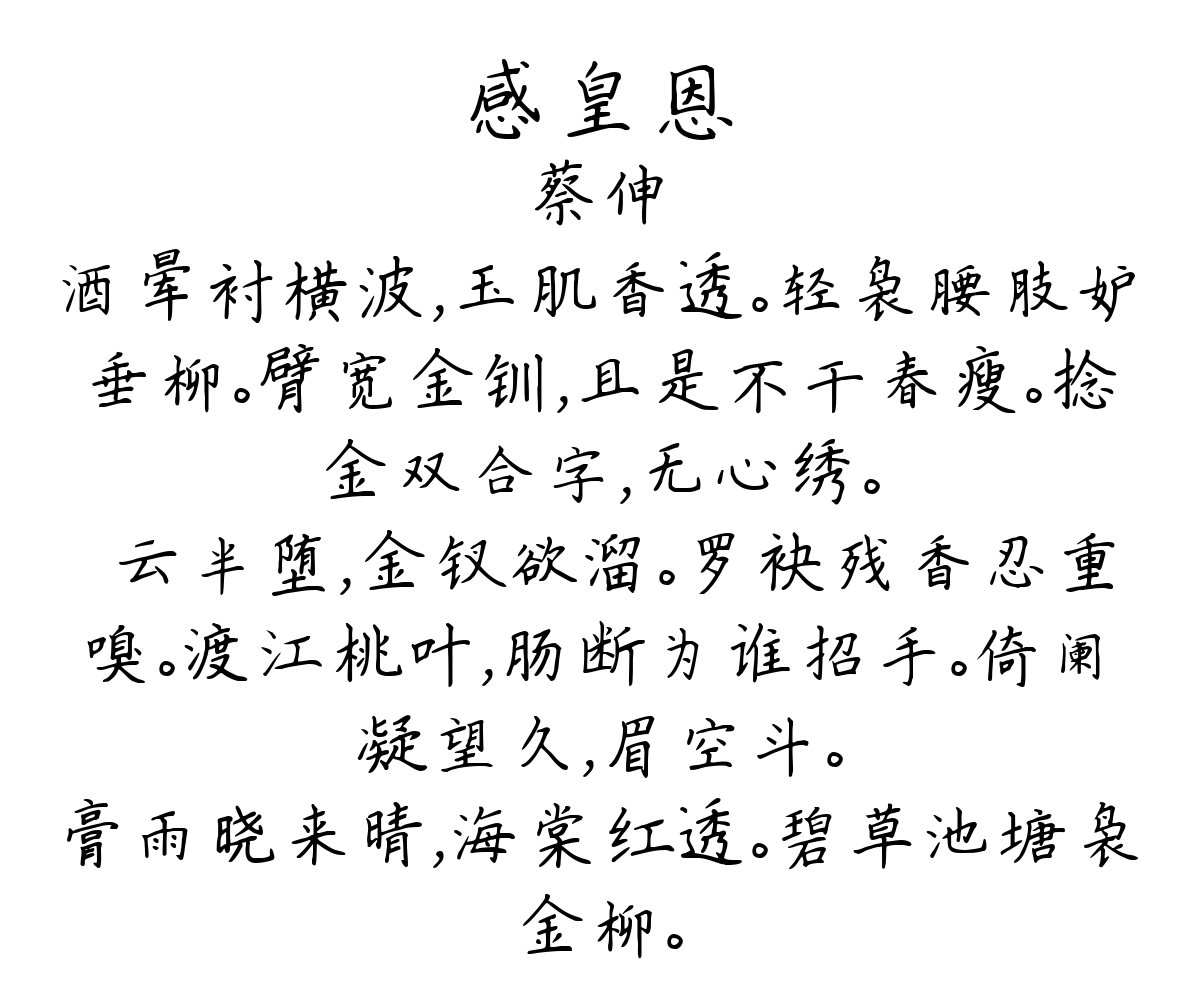 感皇恩
蔡伸
酒晕衬横波,玉肌香透。轻袅腰肢妒
垂柳。臂宽金钏,且是不干春瘦。捻
金双合字,无心绣。
云半堕,金钗欲溜。罗袂残香忍重
嗅。渡江桃叶,肠断为谁招手。倚阑
凝望久,眉空斗。
膏雨晓来晴,海棠红透。碧草池塘袅
金柳。